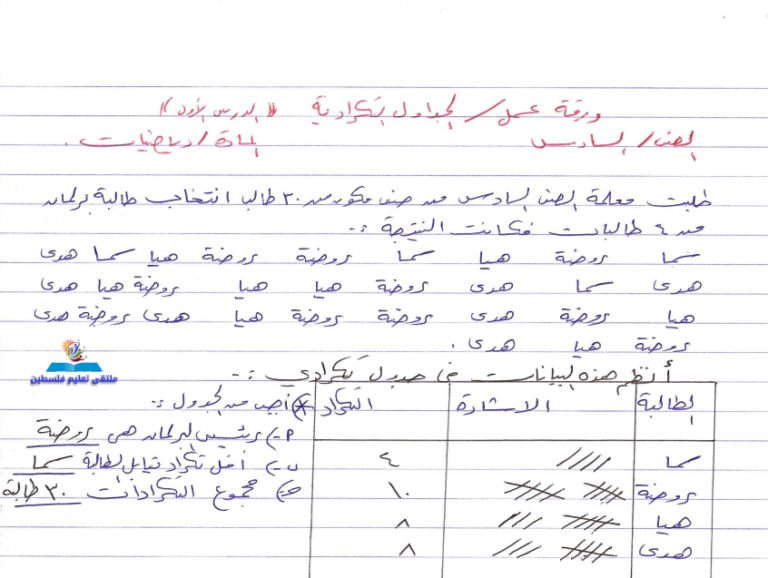 ورقة عمل / الجداول التكرارية "الدرس الأول"
الصف / السادس المادة / رياضيات .
طلبت معلمة الصف السادس من صف مكون من ٣٠ طالبا انتخاب طالبة برلمان
من ٤ طالبات فكانت النتيجة :-
سما روضة هيا سما روضة روضة هيا سما هدى
هدى سما هدى روضة هيا هيا روضة هيا هدى
هيا روضة هدى روضة روضة هيا هدى روضة هدى
روضة هيا هدى .
ملتقى تعليم فلسطين
أنظم هذه البيانات في جدول تكراري :-
الطالبة الاشارة التكرار
سما //// ٤
روضة ١٠
هيا ٨
هدى ٨
* أجب من الجدول :-
أ-) رئيس لبرلمان هي روضة
ب-) أقل تكرار تقابل لطالبة سما
ج-) مجموع التكرارات ٣٠ طالبة